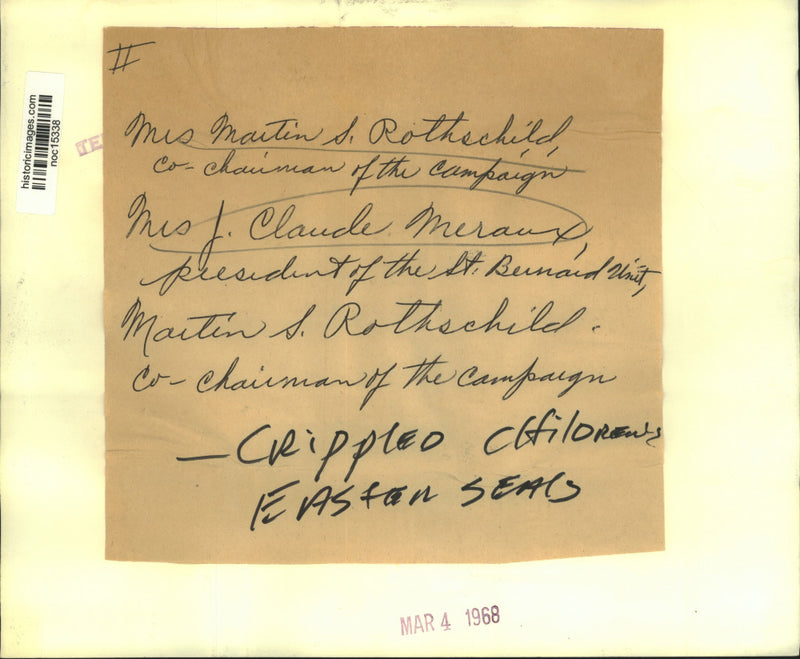 II
historicimages.com
noc15338
Mrs Martin S. Rothschild,
co-chairman of the campaign
Mrs J. Claude Meraux,
president of the St. Bernard Unit,
Martin S. Rothschild.
co-chairman of the campaign
— CRippLED CHilDREN's
EASTER SEAlS
MAR 4 1968